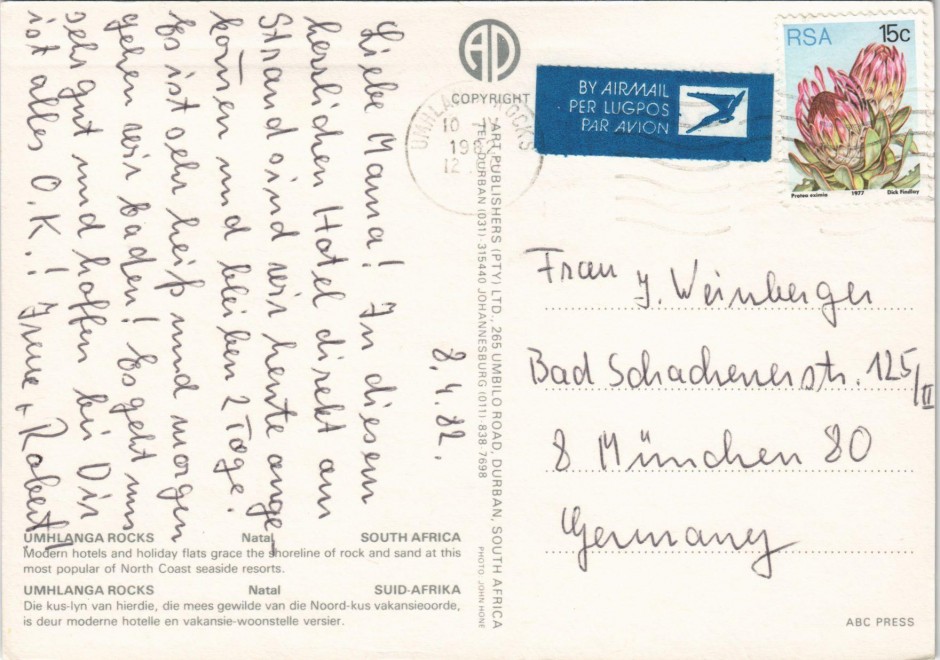 8.4.82.
Liebe Mama! In diesem
herrlichen Hotel direkt am
Strand sind wir heute ange-
komen und bleiben 2 Tage.
Es ist sehr heiß und morgen
gehen wir baden! Es geht uns
sehr gut und hoffen bei Dir
ist alles O.K.! Irene + Robert
UMHLANGA ROCKS Natal SOUTH AFRICA
Modern hotels and holiday flats grace the shoreline of rock and sand at this
most popular of North Coast seaside resorts.
UMHLANGA ROCKS Natal SUID-AFRIKA
Die kus-lyn van hierdie, die mees gewilde van die Noord-kus vakansieoorde,
is deur moderne hotelle en vakansie-woonstelle versier.
COPYRIGHT
ART PUBLISHERS (PTY) LTD., 265 UMBILO ROAD, DURBAN, SOUTH AFRICA
TEL. DURBAN (031) 315440 JOHANNESBURG (011) 838 7698
PHOTO JOHN HONE
UMHLANGA ROCKS
10
12
BY AIRMAIL
PER LUGPOS
PAR AVION
RSA 15c
Protea eximia 1977 Dick Findlay
Frau J. Weinberger
Bad Schachenerstr. 125/II
8 München 80
Germany
ABC PRESS